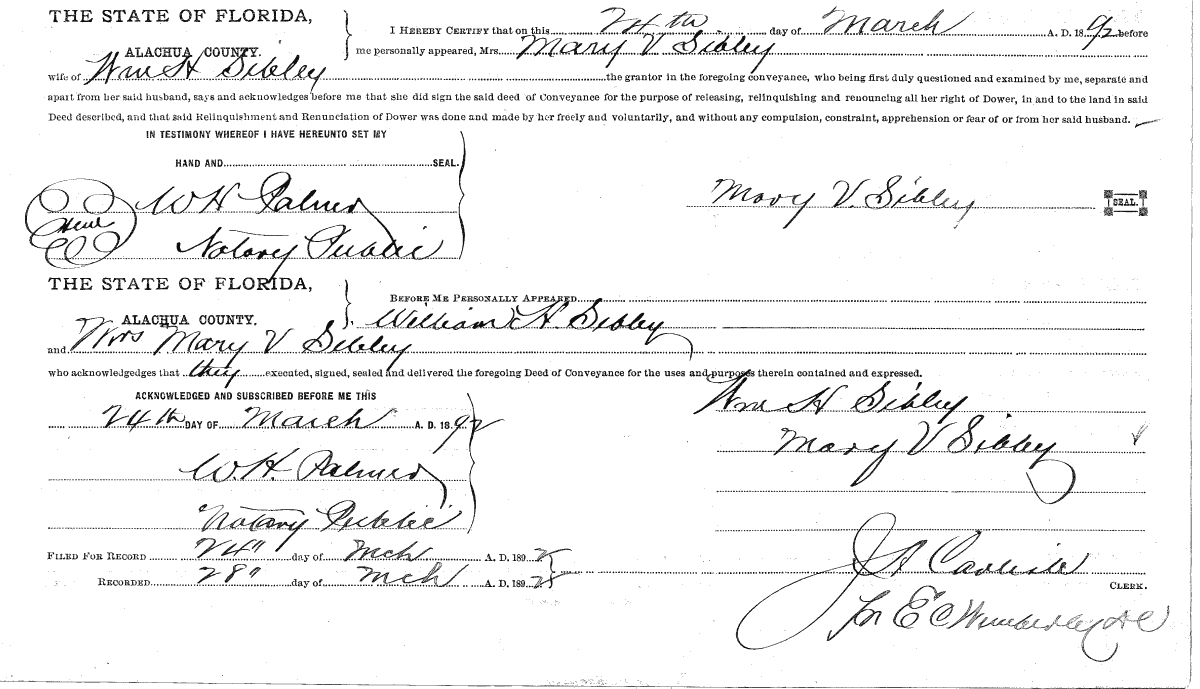 THE STATE OF FLORIDA,
ALACHUA COUNTY.
I HEREBY CERTIFY that on this 24th day of March A. D. 1892 before
me personally appeared, Mrs. Mary V Sibley
wife of Wm H Sibley the grantor in the foregoing conveyance, who being first duly questioned and examined by me, separate and
apart from her said husband, says and acknowledges before me that she did sign the said deed of Conveyance for the purpose of releasing, relinquishing and renouncing all her right of Dower, in and to the land in said
Deed described, and that said Relinquishment and Renunciation of Dower was done and made by her freely and voluntarily, and without any compulsion, constraint, apprehension or fear of or from her said husband.
IN TESTIMONY WHEREOF I HAVE HEREUNTO SET MY
HAND AND SEAL.
W H Palmer
Notary Public
Seal
Mary V. Sibley SEAL.
THE STATE OF FLORIDA,
ALACHUA COUNTY.
BEFORE ME PERSONALLY APPEARED
William H. Sibley
and Mrs Mary V Sibley
who acknowledgedges that they executed, signed, sealed and delivered the foregoing Deed of Conveyance for the uses and purposes therein contained and expressed.
ACKNOWLEDGED AND SUBSCRIBED BEFORE ME THIS
24th DAY OF March A. D. 1892
W. H. Palmer
Notary Public
Wm H Sibley
Mary V Sibley
FILED FOR RECORD 24" day of Mch A. D. 1892
RECORDED 28" day of Mch A. D. 1892
J A Carlisle
CLERK.
Per E C Wimberley DC